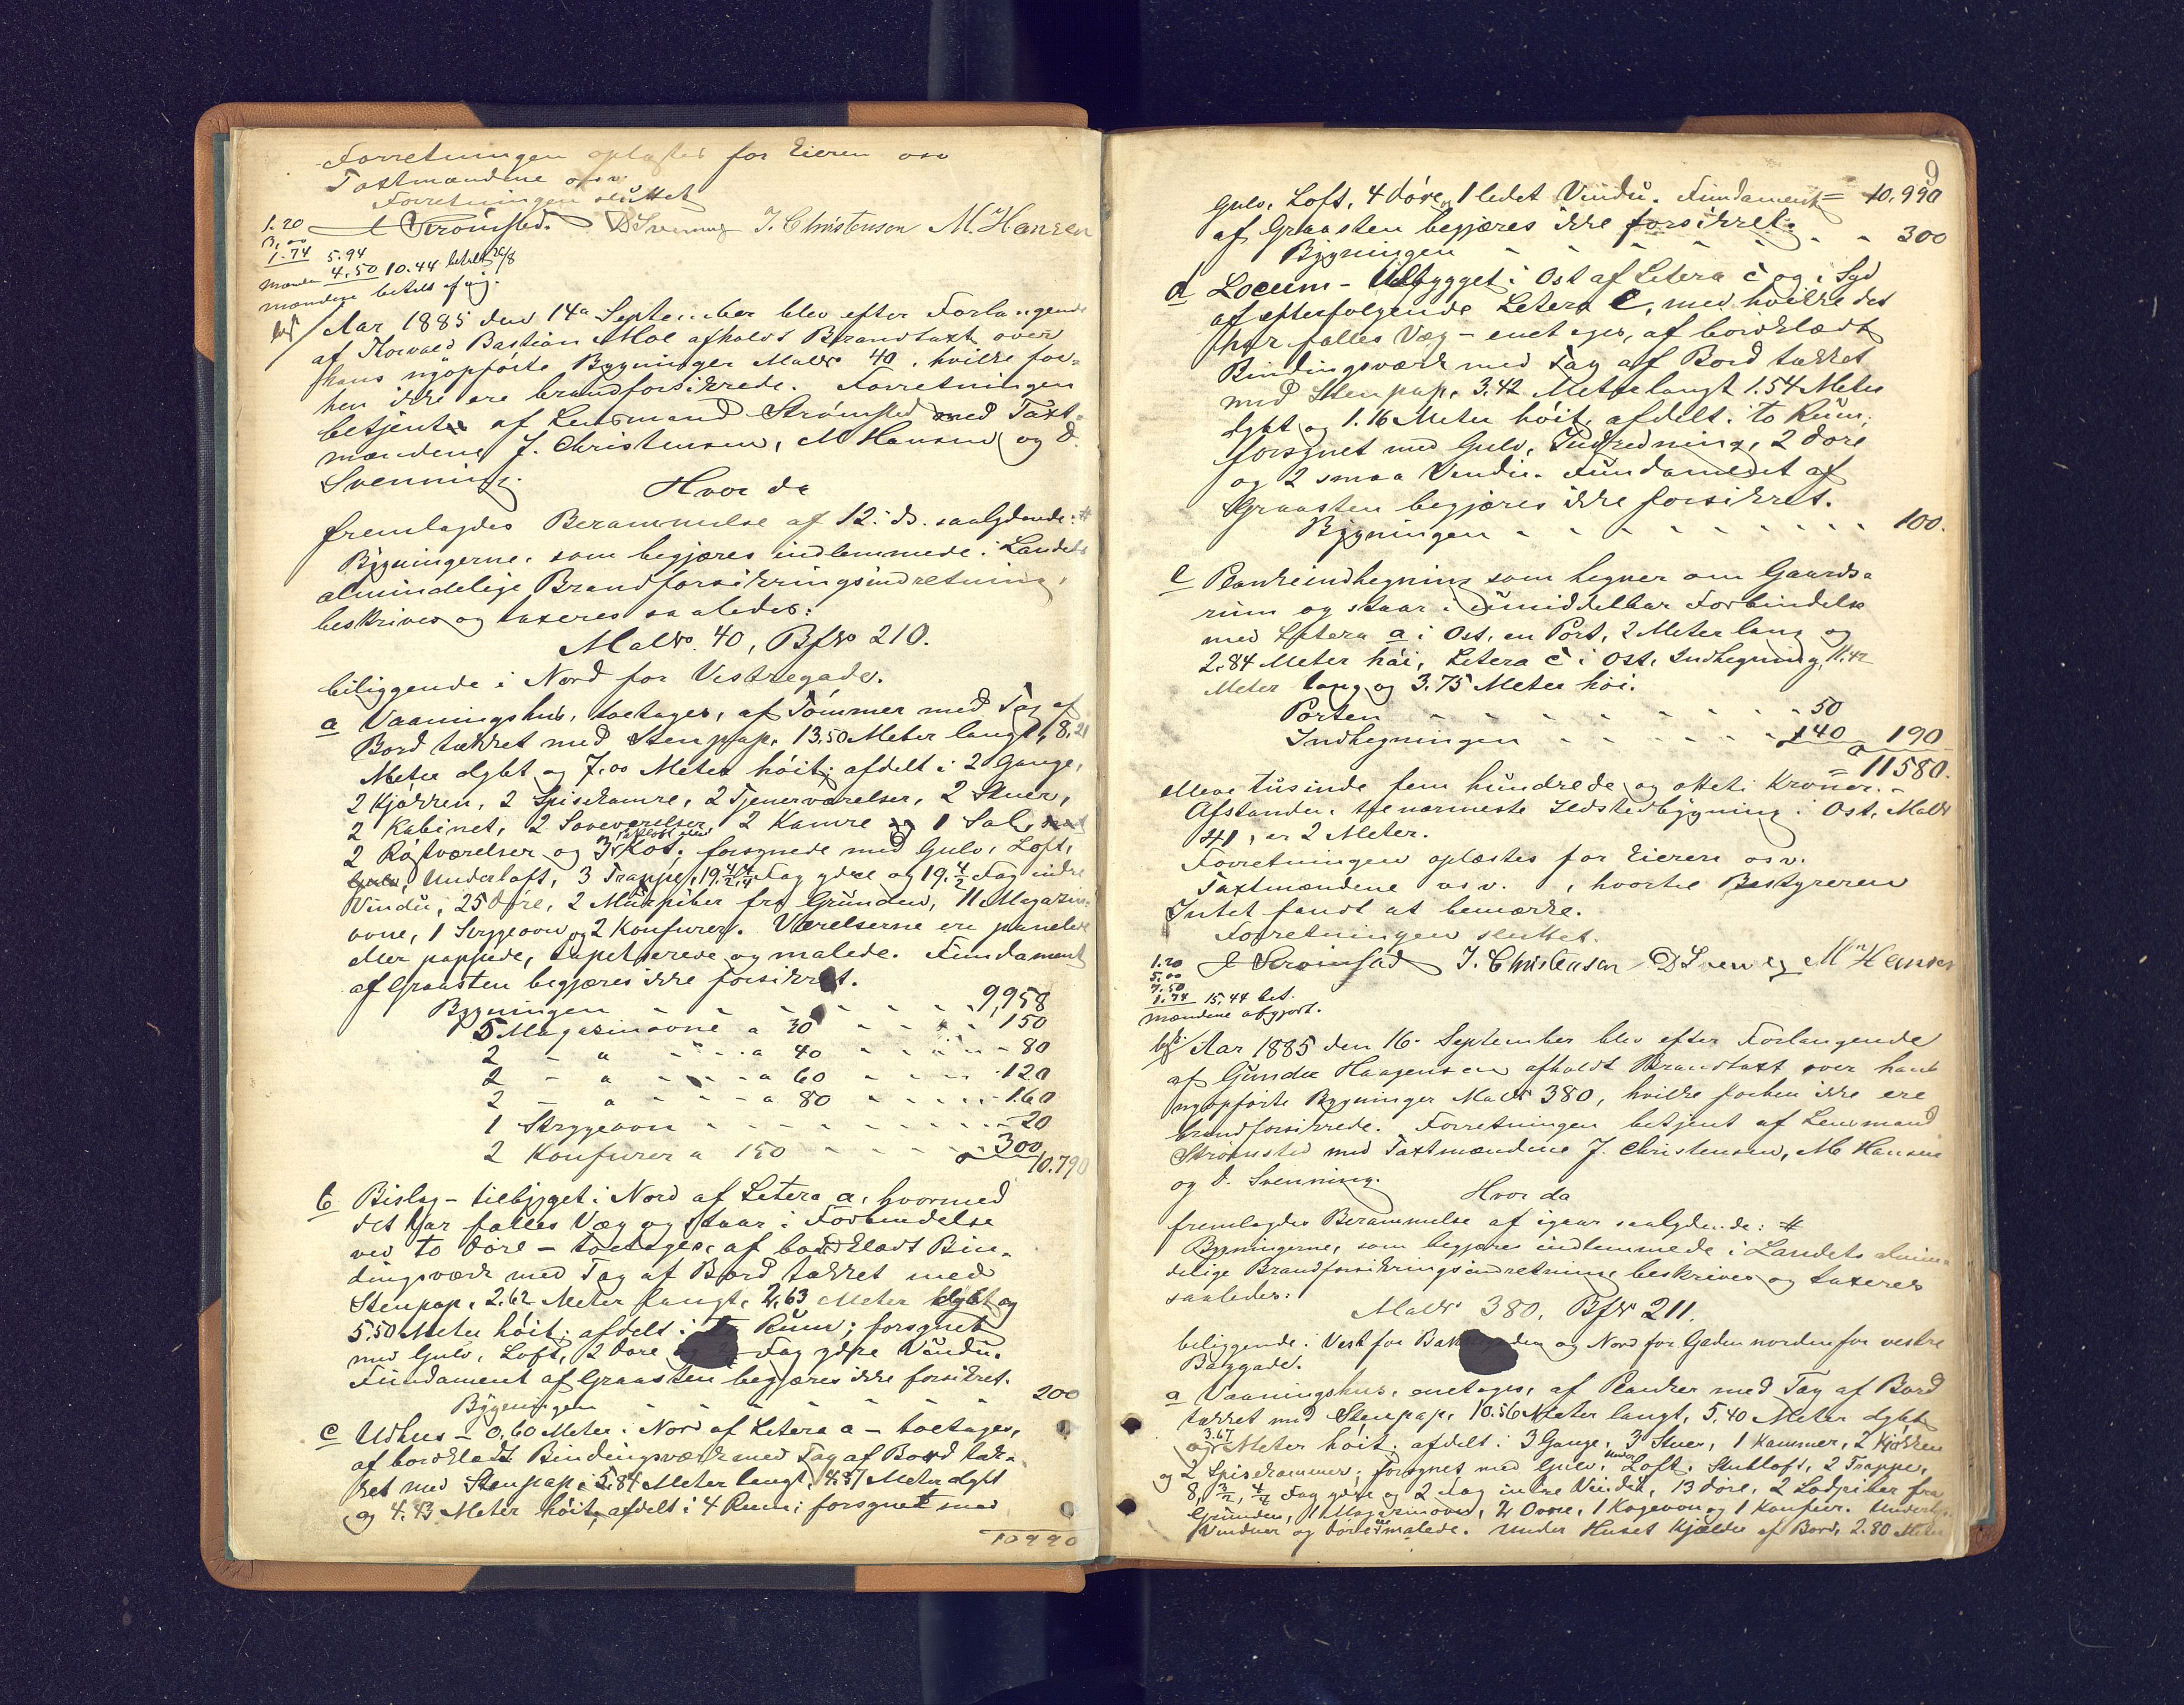 Forretningen oplæstes for Eieren osv
Taxtmændene osv.
Forretningen sluttet
Strömsted. D Svenning J. Christenson M. Hansen
1.20
3,00
1.74 5.94
4.50 10.44 betalt 26/8
mændene betalt af mig.
Aar 1885 den 14de September blev efter Forlangende
af Thorvald Bastian Moe afholdt Brandtaxt over
hans nyopförte Bygninger MatNo 40, hvilke for-
hen ikke ere brandforsikrede. Forretningen
betjentes af Lensmand Strömsted med Taxt-
mændene J. Christensen, M Hansen og D.
Svenning.
Hvor da
fremlagdes Berammelse af 12. ds. saalydende: #
Bygningerne, som begjæres indlemmede i Landets
almindelige Brandforsikringsindretning,
beskrives og taxeres saaledes:
MatNo. 40, BfNo 210.
beliggende i Nord for Vestregade.
a Vaaningshus, toetages, af Tömmer med Tag af
Bord tækket med Stenpap, 13.50 Meter langt, 8,21
Meter dybt og 7,00 Meter höit; afdelt i 2 Gange,
2 Kjökken, 2 Spiskamre, 2 Tjenerværelser, 2 Stuer,
2 Kabinet, 2 Soveværelser, 2 Kamre og 1 Sal,
2 Röstværelser og 3 Kot; forsynede med Gulv, Loft,
Underloft, 3 Trapper, 19 4/2, 4/4 Fag ydre og 19. 4/2 Fag indre
Vindu, 25 Döre, 2 Murpiber fra Grunden, 11 Magazin-
ovne, 1 Strygeovn og 2 Komfurer. Værelserne ere panelede
eller pappede, tapetserede og malede. Fundament
af Graasten begjæres ikke forsikret.
Bygningen - - - - 9,958
5 Magasinovne a 30 - - - 150
2 - " - - - a 40 - - - 80
2 - " - - - a 60 - - - 120
2 - " - - - a 80 - - - 160
1 Strygeovn - - - - - 20
2 Komfurer a 150 - - - - 300
10.790
b Bislag - tilbygget i Nord af Letera a, hvormed
det har fælles Væg og staar i Forbindelse
ved to Döre - toetages, af bordklædt Bin-
dingsværk med Tag af Bord tækket med
Stenpap, 2.62 Meter langt, 2,63 Meter dybt og
5.50 Meter höit; afdelt i Rum; forsynet
med Gulv, Loft, 2 Döre Fag ydre Vindu.
Fundament af Graasten begjæres ikke forsikret.
Bygningen - - - - - 200
c Udhus - 0.60 Meter i Nord af Letera a - toetages,
af bordklædt Bindingsværk med Tag af Bord tæk-
ket med Stenpap; 5.84 Meter langt, 4.87 Meter dybt
og 4.43 Meter höit; afdelt i 4 Rum; forsynet med
10990
9
Gulv, Loft, 4 döre, 1 ledet Vindu. Fundament = 10.990
af Graasten begjæres ikke forsikret.
Bygningen - - - - - 300
d Locum - tilbygget i Ost af Letera c og i Syd
af efterfolgende Letera e, med hvilke det
har fælles Væg - enetages, af bordklædt
Bindingsværk med Tag af Bord tækket
med Stenpap, 3.42 Meter langt 1.54 Meter
dybt og 1.16 Meter höit, afdelt i to Rum;
forsynet med Gulv, Indredning, 2 döre
og 2 smaa Vindu. Fundamentet af
Graasten begjæres ikke forsikret.
Bygningen - - - - - - 100.
e Plankeindhegning som hegner om Gaards-
rum og staar i umiddelbar Forbindelse
med Letera a i Ost, en Port, 2 Meter lang og
2.84 Meter höi, Letera c i Ost, Indhegning, 11.42
Meter lang og 3.75 Meter höi.
Porten - - - - - - 50
Indhegningen - - - - - 140 190
= 11580.
elleve tusinde fem hundrede og otteti Kroner.
Afstanden til nærmeste Ildstedbygning i Ost, MatNo
41, er 2 Meter.
Forretningen oplæstes for Eieren osv.
Taxtmændene osv. , hvortil Bestyreren
Intet fandt at bemærke.
Forretningen sluttet.
Strömsted J. Christensen D Svenning M Hansen
1.20
5,00
7.50
1.74 15.44 bet.
mændene afgjort.
Aar 1885 den 16. September blev efter Forlangende
af Gunder Haagensen afholdt Brandtaxt over hans
nyopförte Bygninger MatNo 380, hvilke forhen ikke ere
brandforsikrede. Forretningen betjent af Lensmand
Strömsted med Taxtmændene J. Christensen, M Hansen
og D. Svenning.
Hvor da
fremlagdes Berammelse af igaar saalydende: #
Bygningerne, som begjæres indlemmede i Landets almin-
delige Brandforsikringsindretning beskrives og taxeres
saaledes:
MatNo 380, BfNo 211.
beliggende i Vest for og Nord for Gaden nordenfor vestre
Baggade.
a Vaaningshus, enetages, af Planker med Tag af Bord
tækket med Stenpap, 10.56 Meter langt, 5.40 Meter dybt
og 3.67 Meter höit; afdelt i 3 Gange, 3 Stuer, 1 Kammer, 2 Kjökken
og 2 Spiskammer; forsynet med Gulv, Underloft, Stubloft, 2 Trapper,
8, 3/2, 4/4 Fag ydre og 2 Fag indre Vindu, 13 döre, 2 Lodpiber fra
Grunden, 1 Magasinovn, 2 Ovne, 1 Kogeovn og 1 Komfur.
Vinduer og döre ere malede. Under Huset Kjælder af Bord, 2.80 Meter